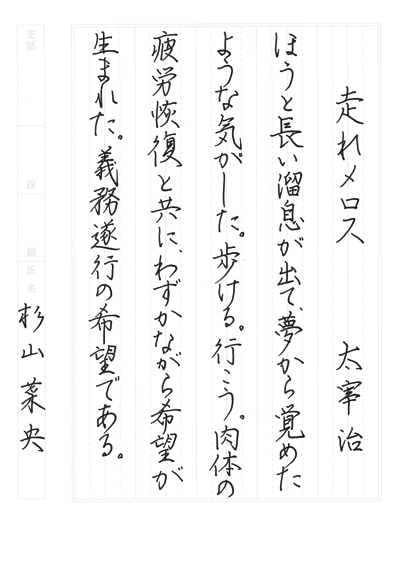 走れメロス　太宰治
ほうと長い溜息が出て、夢から覚めた
ような気がした。歩ける。行こう。肉体の
疲労恢復と共に、わずかながら希望が
生まれた。義務遂行の希望である。
支部　段　級　氏名　杉山菜央